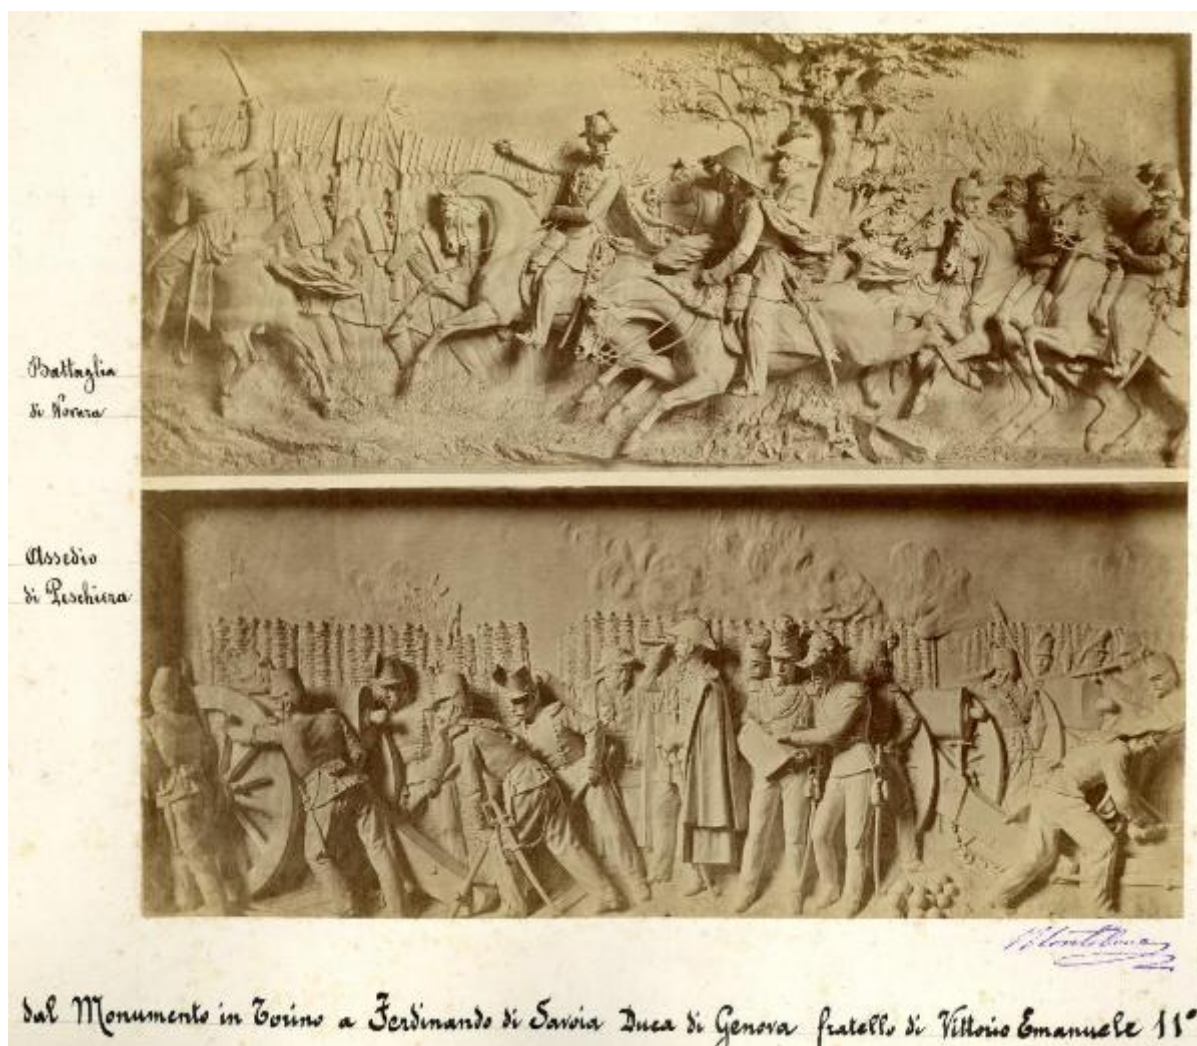 Battaglia
di Novara
Assedio
di Peschiera
dal Monumento in Torino a Ferdinando di Savoia Duca di Genova fratello di Vittorio Emanuele 11º